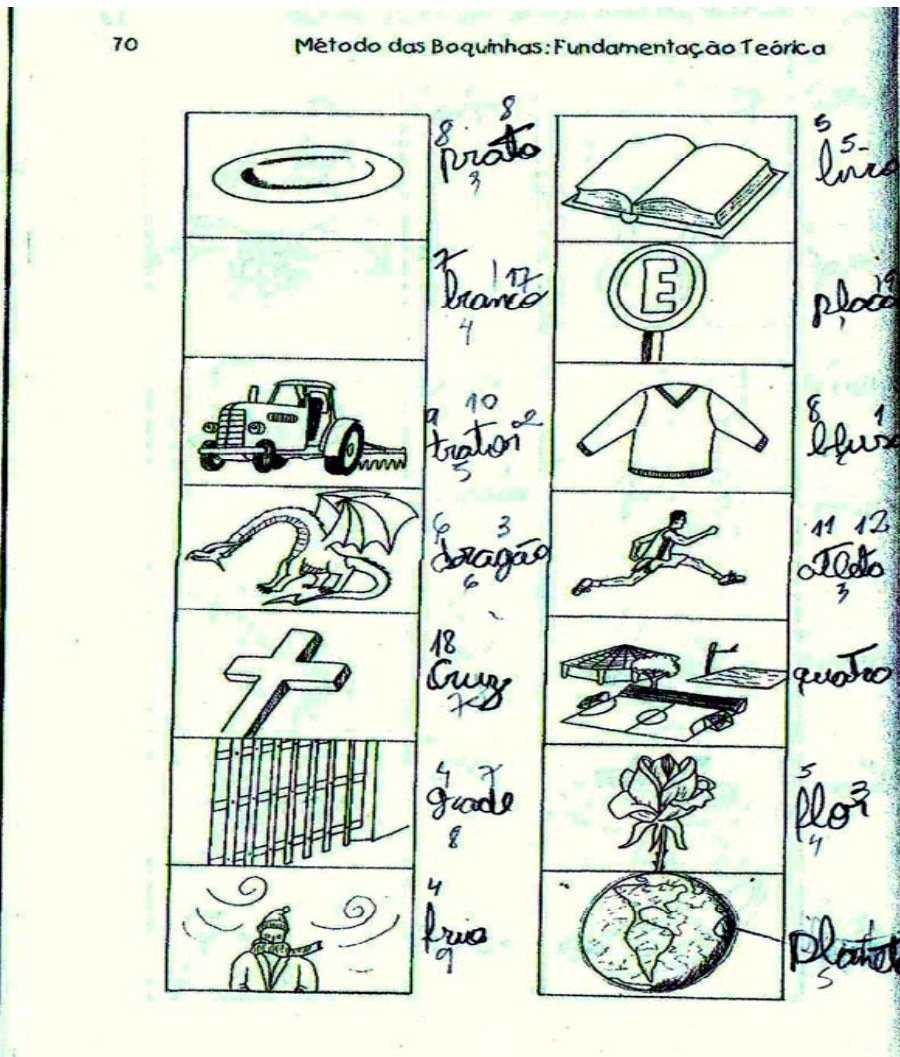 70
Método das Boquinhas: Fundamentação Teórica
8 8
prato
3
7 1 17
branco
4
9 10 2
trator
5
6 3
dragão
6
18
Cruz
7
4 7
grade
8
4
frio
9
5 5
livro
E
placa
8 1
blusa
11 12
atleta
3
quatro
5 3
flor
4
Planet
5